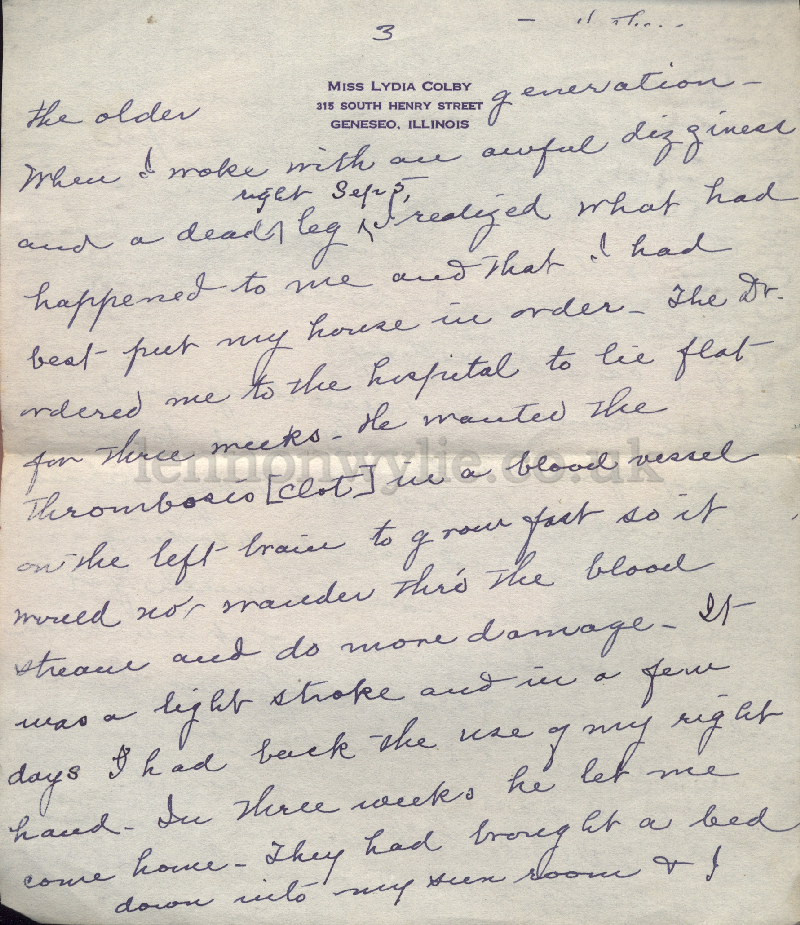 3
MISS LYDIA COLBY
315 SOUTH HENRY STREET
GENESEO, ILLINOIS
the older generation -
When I woke with an awful dizziness
right Sep 5,
and a dead leg I realized what had
happened to me and that I had
best put my house in order - The Dr.
ordered me to the hospital to lie flat
for three weeks - He wanted the
lennonwylie.co.uk
thrombosis [clot] in a blood vessel
on the left brain to grow fast so it
would not wander thro the blood
stream and do more damage - It
was a light stroke and in a few
days I had back the use of my right
hand - In three weeks he let me
come home - They had brought a bed
down into my sun room & I